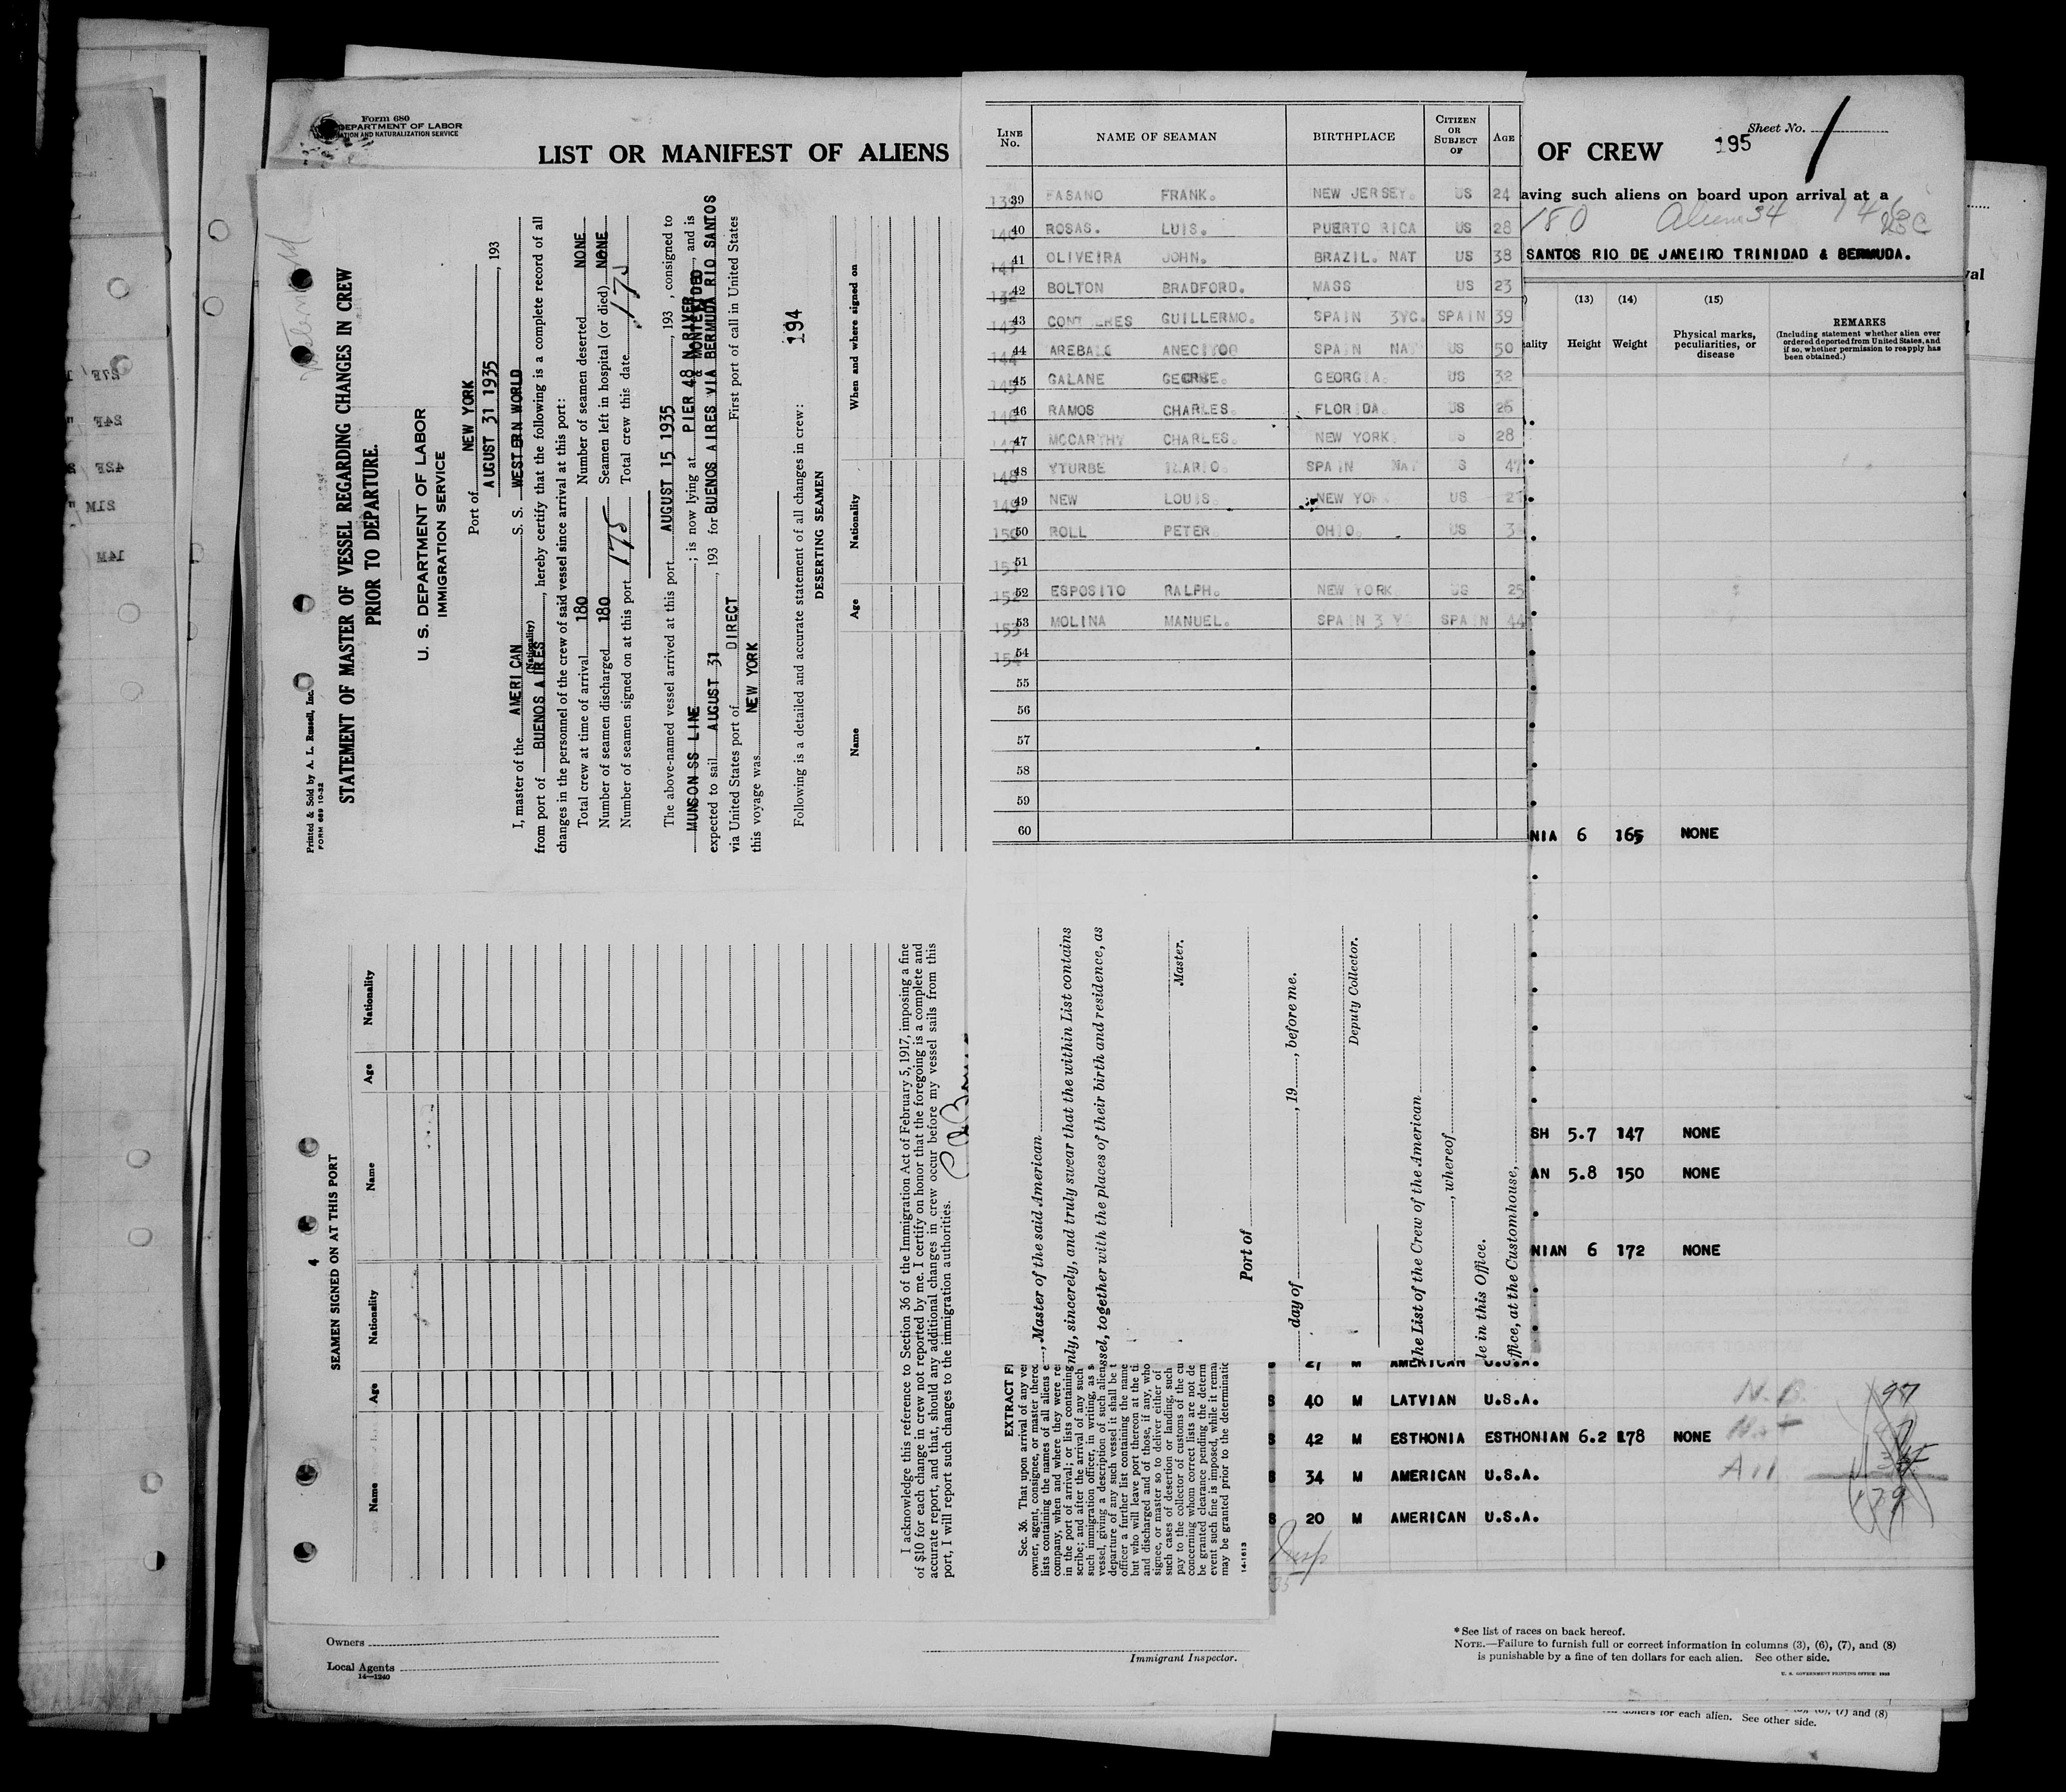 Form 680
DEPARTMENT OF LABOR
LIST OR MANIFEST OF ALIENS
Printed & Sold by A. L. Russell, Inc.
FORM 689 10-32
STATEMENT OF MASTER OF VESSEL REGARDING CHANGES IN CREW
PRIOR TO DEPARTURE.
U. S. DEPARTMENT OF LABOR
IMMIGRATION SERVICE
Port of NEW YORK
AUGUST 31 1935, 193
I, master of the AMERICAN S. S. WESTERN WORLD
(Nationality)
from port of BUENOS AIRES, hereby certify that the following is a complete record of all
changes in the personnel of the crew of said vessel since arrival at this port:
Total crew at time of arrival 180 Number of seamen deserted NONE
Number of seamen discharged 180 Seamen left in hospital (or died) NONE
Number of seamen signed on at this port 175 Total crew this date 175
The above-named vessel arrived at this port AUGUST 15 1935, 193 , consigned to
MUNSON SS LINE ; is now lying at PIER 48 N.RIVER, and is
& MONTEVIDEO
expected to sail AUGUST 31, 193 for BUENOS AIRES VIA BERMUDA RIO SANTOS
via United States port of DIRECT First port of call in United States
this voyage was NEW YORK
194
Following is a detailed and accurate statement of all changes in crew:
DESERTING SEAMEN
Name Age Nationality When and where signed on
4
SEAMEN SIGNED ON AT THIS PORT
Name Age Nationality Name Age Nationality
I acknowledge this reference to Section 36 of the Immigration Act of February 5, 1917, imposing a fine
of $10 for each change in crew not reported by me. I certify on honor that the foregoing is a complete and
accurate report, and that, should any additional changes in crew occur before my vessel sails from this
port, I will report such changes to the immigration authorities.
LINE No. NAME OF SEAMAN BIRTHPLACE CITIZEN OR SUBJECT OF AGE
39 FASANO FRANK. NEW JERSEY. US 24
40 ROSAS. LUIS. PUERTO RICA US 28
41 OLIVEIRA JOHN. BRAZIL. NAT US 38
42 BOLTON BRADFORD. MASS US 23
43 GUILLERMO. SPAIN 3YC. SPAIN 39
44 SPAIN NAT US 50
45 GALANE GEORGE. GEORGIA. US 32
46 RAMOS CHARLES. FLORIDA. US 26
47 MCCARTHY CHARLES. NEW YORK. US 28
48 YTURBE SPAIN NAT US 47
49 NEW LOUIS. NEW YORK US
50 ROLL PETER. OHIO. US
51
52 ESPOSITO RALPH. NEW YORK. US 25
53 MOLINA MANUEL. SPAIN 3 Y SPAIN 44
54
55
56
57
58
59
60
, Master of the said American
nly, sincerely, and truly swear that the within List contains
ssel, together with the places of their birth and residence, as
Master.
Port of
day of , 19 , before me.
Deputy Collector.
he List of the Crew of the American
, whereof
le in this Office.
ffice, at the Customhouse,
EXTRACT F
Sec. 36. That upon arrival of any ves
owner, agent, consignee, or master thereo
lists containing the names of all aliens e
company, when and where they were re
in the port of arrival; or lists containing
scribe; and after the arrival of any such
such immigration officer, in writing, as s
vessel, giving a description of such aliens
departure of any such vessel it shall be t
officer a further list containing the name
but who will leave port thereon at the ti
and discharged and of those, if any, who
signee, or master so to deliver either of
such cases of desertion or landing, such
pay to the collector of customs of the cu
concerning whom correct lists are not de
be granted clearance pending the determ
event such fine is imposed, while it remai
may be granted prior to the determinatio
14-1613
OF CREW
195
Sheet No. 1
aving such aliens on board upon arrival at a
180 Aliens 34 146 USC
SANTOS RIO DE JANEIRO TRINIDAD & BERMUDA.
(13) (14) (15)
ality Height Weight Physical marks, peculiarities, or disease
REMARKS
(Including statement whether alien ever
ordered deported from United States, and
if so, whether permission to reapply has
been obtained.)
NIA 6 165 NONE
SH 5.7 147 NONE
AN 5.8 150 NONE
NIAN 6 172 NONE
27 M AMERICAN U.S.A.
40 M LATVIAN U.S.A.
42 M ESTHONIA ESTHONIAN 6.2 178 NONE
34 M AMERICAN U.S.A.
20 M AMERICAN U.S.A.
97
179
Owners
Local Agents
14-1240
Immigrant Inspector.
* See list of races on back hereof.
NOTE.—Failure to furnish full or correct information in columns (3), (6), (7), and (8)
is punishable by a fine of ten dollars for each alien. See other side.
U. S. GOVERNMENT PRINTING OFFICE
(7) and (8)
for each alien. See other side.